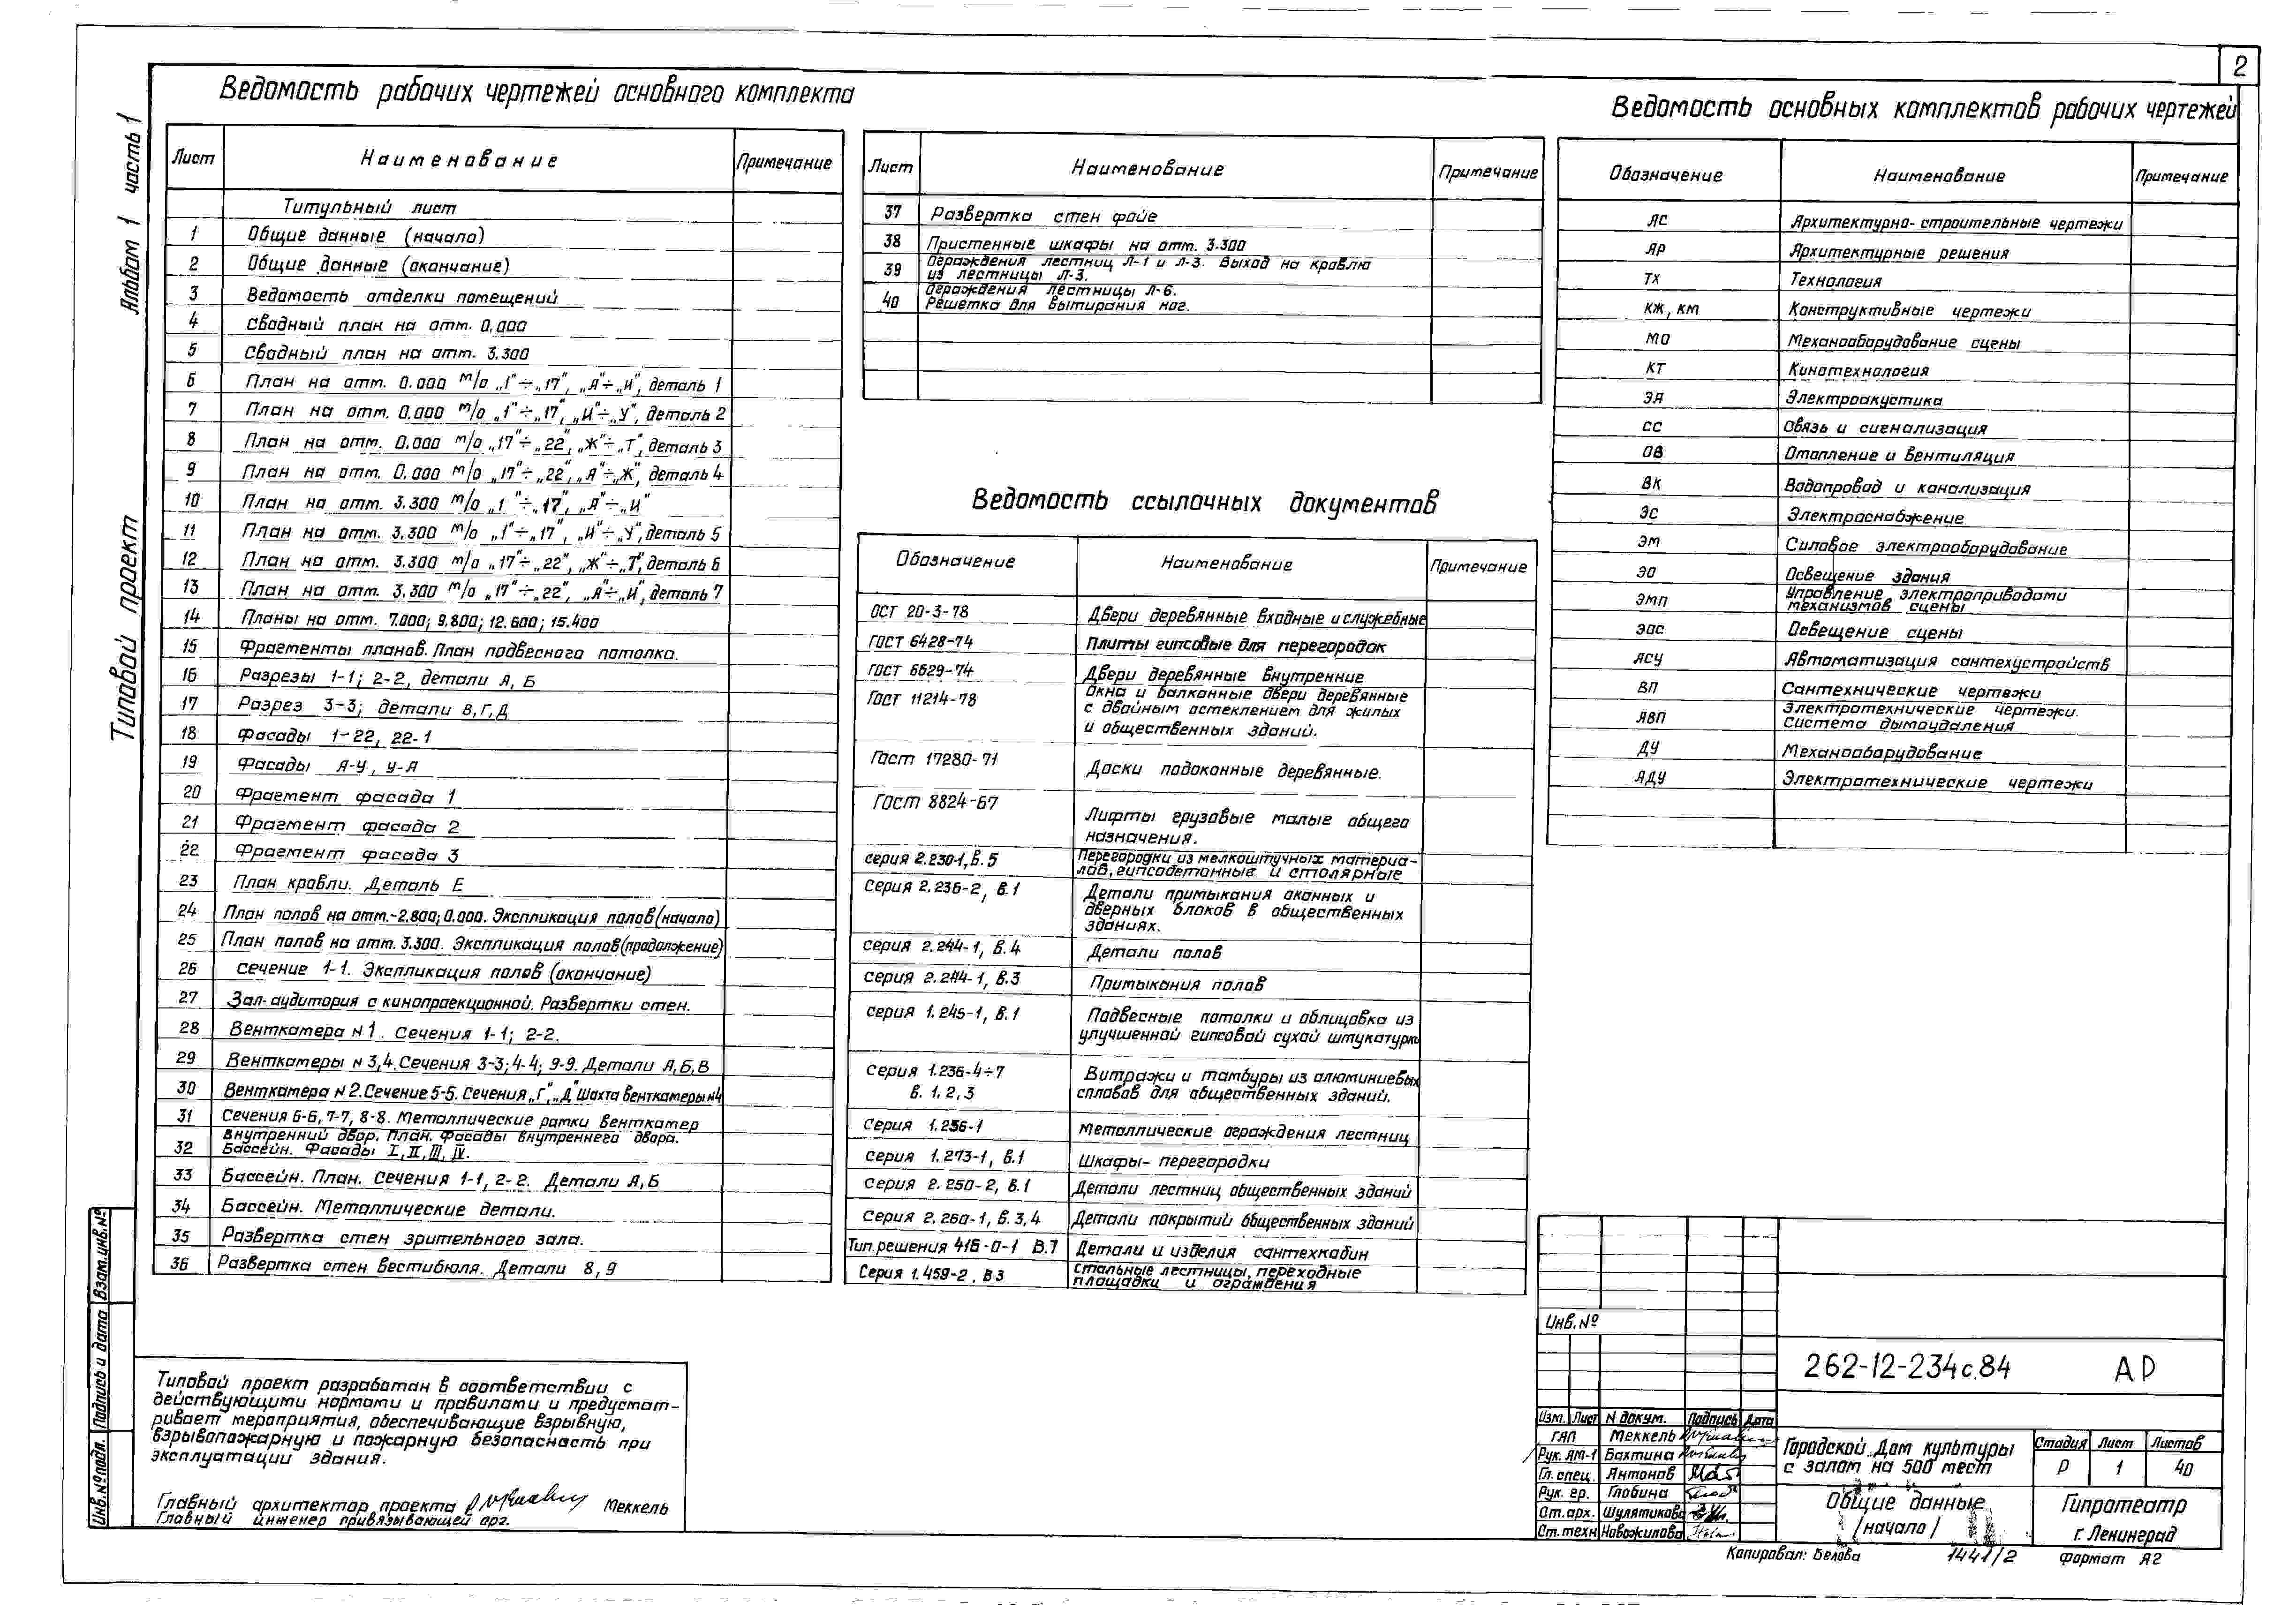 2
Альбом 1 часть 1
Типовой проект
Ведомость рабочих чертежей основного комплекта
Лист Наименование Примечание
Титульный лист
1 Общие данные (начало)
2 Общие данные (окончание)
3 Ведомость отделки помещений
4 Сводный план на отм. 0,000
5 Сводный план на отм. 3.300
6 План на отм. 0.000 м/о „1"÷„17", „А"÷„И", деталь 1
7 План на отм. 0.000 м/о „1"÷„17", „И"÷„У", деталь 2
8 План на отм. 0.000 м/о „17"÷„22", „Ж"÷„Т", деталь 3
9 План на отм. 0.000 м/о „17"÷„22", „А"÷„Ж", деталь 4
10 План на отм. 3.300 м/о „1"÷„17", „А"÷„И"
11 План на отм. 3.300 м/о „1"÷„17", „И"÷„У", деталь 5
12 План на отм. 3.300 м/о „17"÷„22", „Ж"÷„Т", деталь 6
13 План на отм. 3.300 м/о „17"÷„22", „А"÷„И", деталь 7
14 Планы на отм. 7.000; 9.800; 12.600; 15.400
15 Фрагменты планов. План подвесного потолка.
16 Разрезы 1-1; 2-2, детали А, Б
17 Разрез 3-3; детали В, Г, Д
18 Фасады 1-22, 22-1
19 Фасады А-У, У-А
20 Фрагмент фасада 1
21 Фрагмент фасада 2
22 Фрагмент фасада 3
23 План кровли. Деталь Е
24 План полов на отм.-2.800; 0.000. Экспликация полов (начало)
25 План полов на отм. 3.300. Экспликация полов (продолжение)
26 Сечение 1-1. Экспликация полов (окончание)
27 Зал-аудитория с кинопроекционной. Развертки стен.
28 Венткамера N1. Сечения 1-1; 2-2.
29 Венткамеры N 3,4. Сечения 3-3; 4-4; 9-9. Детали А, Б, В
30 Венткамера N2. Сечение 5-5. Сечения „Г", „Д" Шахта венткамеры N4
31 Сечения 6-6, 7-7, 8-8. Металлические рамки венткамер
32 Внутренний двор. План. Фасады внутреннего двора.
Бассейн. Фасады I, II, III, IV.
33 Бассейн. План. Сечения 1-1, 2-2. Детали А, Б
34 Бассейн. Металлические детали.
35 Развертка стен зрительного зала.
36 Развертка стен вестибюля. Детали 8, 9
Лист Наименование Примечание
37 Развертка стен фойе
38 Пристенные шкафы на отм. 3.300
39 Ограждения лестниц Л-1 и Л-3. Выход на кровлю
из лестницы Л-3.
40 Ограждения лестницы Л-6.
Решетка для вытирания ног.
Ведомость ссылочных документов
Обозначение Наименование Примечание
ОСТ 20-3-78 Двери деревянные входные и служебные
ГОСТ 6428-74 Плиты гипсовые для перегородок
ГОСТ 6629-74 Двери деревянные внутренние
ГОСТ 11214-78 Окна и балконные двери деревянные
с двойным остеклением для жилых
и общественных зданий.
Гост 17280-71 Доски подоконные деревянные.
Гост 8824-67 Лифты грузовые малые общего
назначения.
серия 2.230-1, в.5 Перегородки из мелкоштучных материа-
лов, гипсобетонные и столярные
серия 2.236-2, в.1 Детали примыкания оконных и
дверных блоков в общественных
зданиях.
серия 2.244-1, в.4 Детали полов
серия 2.244-1, в.3 Примыкания полов
серия 1.245-1, в.1 Подвесные потолки и облицовка из
улучшенной гипсовой сухой штукатурки
Серия 1.236-4÷7 Витражи и тамбуры из алюминиевых
в. 1, 2, 3 сплавов для общественных зданий.
Серия 1.256-1 Металлические ограждения лестниц
серия 1.273-1, в.1 Шкафы-перегородки
серия 2.250-2, в.1 Детали лестниц общественных зданий
Серия 2.260-1, в.3,4 Детали покрытий общественных зданий
Тип.решения 416-0-1 В.7 Детали и изделия сантехкабин
Серия 1.459-2, в3 Стальные лестницы, переходные
площадки и ограждения
Ведомость основных комплектов рабочих чертежей
Обозначение Наименование Примечание
АС Архитектурно-строительные чертежи
АР Архитектурные решения
ТХ Технология
КЖ, КМ Конструктивные чертежи
МО Механооборудование сцены
КТ Кинотехнология
ЭА Электроакустика
СС Связь и сигнализация
ОВ Отопление и вентиляция
ВК Водопровод и канализация
ЭС Электроснабжение
ЭМ Силовое электрооборудование
ЭО Освещение здания
ЭМП Управление электроприводами
механизмов сцены
ЭОС Освещение сцены
АСУ Автоматизация сантехустройств
ВП Сантехнические чертежи
АВП Электротехнические чертежи.
Система дымоудаления
ДУ Механооборудование
АДУ Электротехнические чертежи
Типовой проект разработан в соответствии с
действующими нормами и правилами и предусмат-
ривает мероприятия, обеспечивающие взрывную,
взрывопожарную и пожарную безопасность при
эксплуатации здания.
Главный архитектор проекта Меккель
Главный инженер привязывающей орг.
Инв.№подл. Подпись и дата Взам.инв.№
Инв.№
262-12-234с.84 АР
Изм. Лист N докум. Подпись Дата
ГАП Меккель
Рук. АМ-1 Бахтина
Гл. спец. Антонов
Рук. гр. Глобина
Ст.арх. Шулятикова
Ст.техн Новожилова
Городской Дом культуры
с залом на 500 мест
Стадия Лист Листов
Р 1 40
Общие данные
/начало/
Гипротеатр
г. Ленинград
Копировал: Белова 1441/2 Формат А2